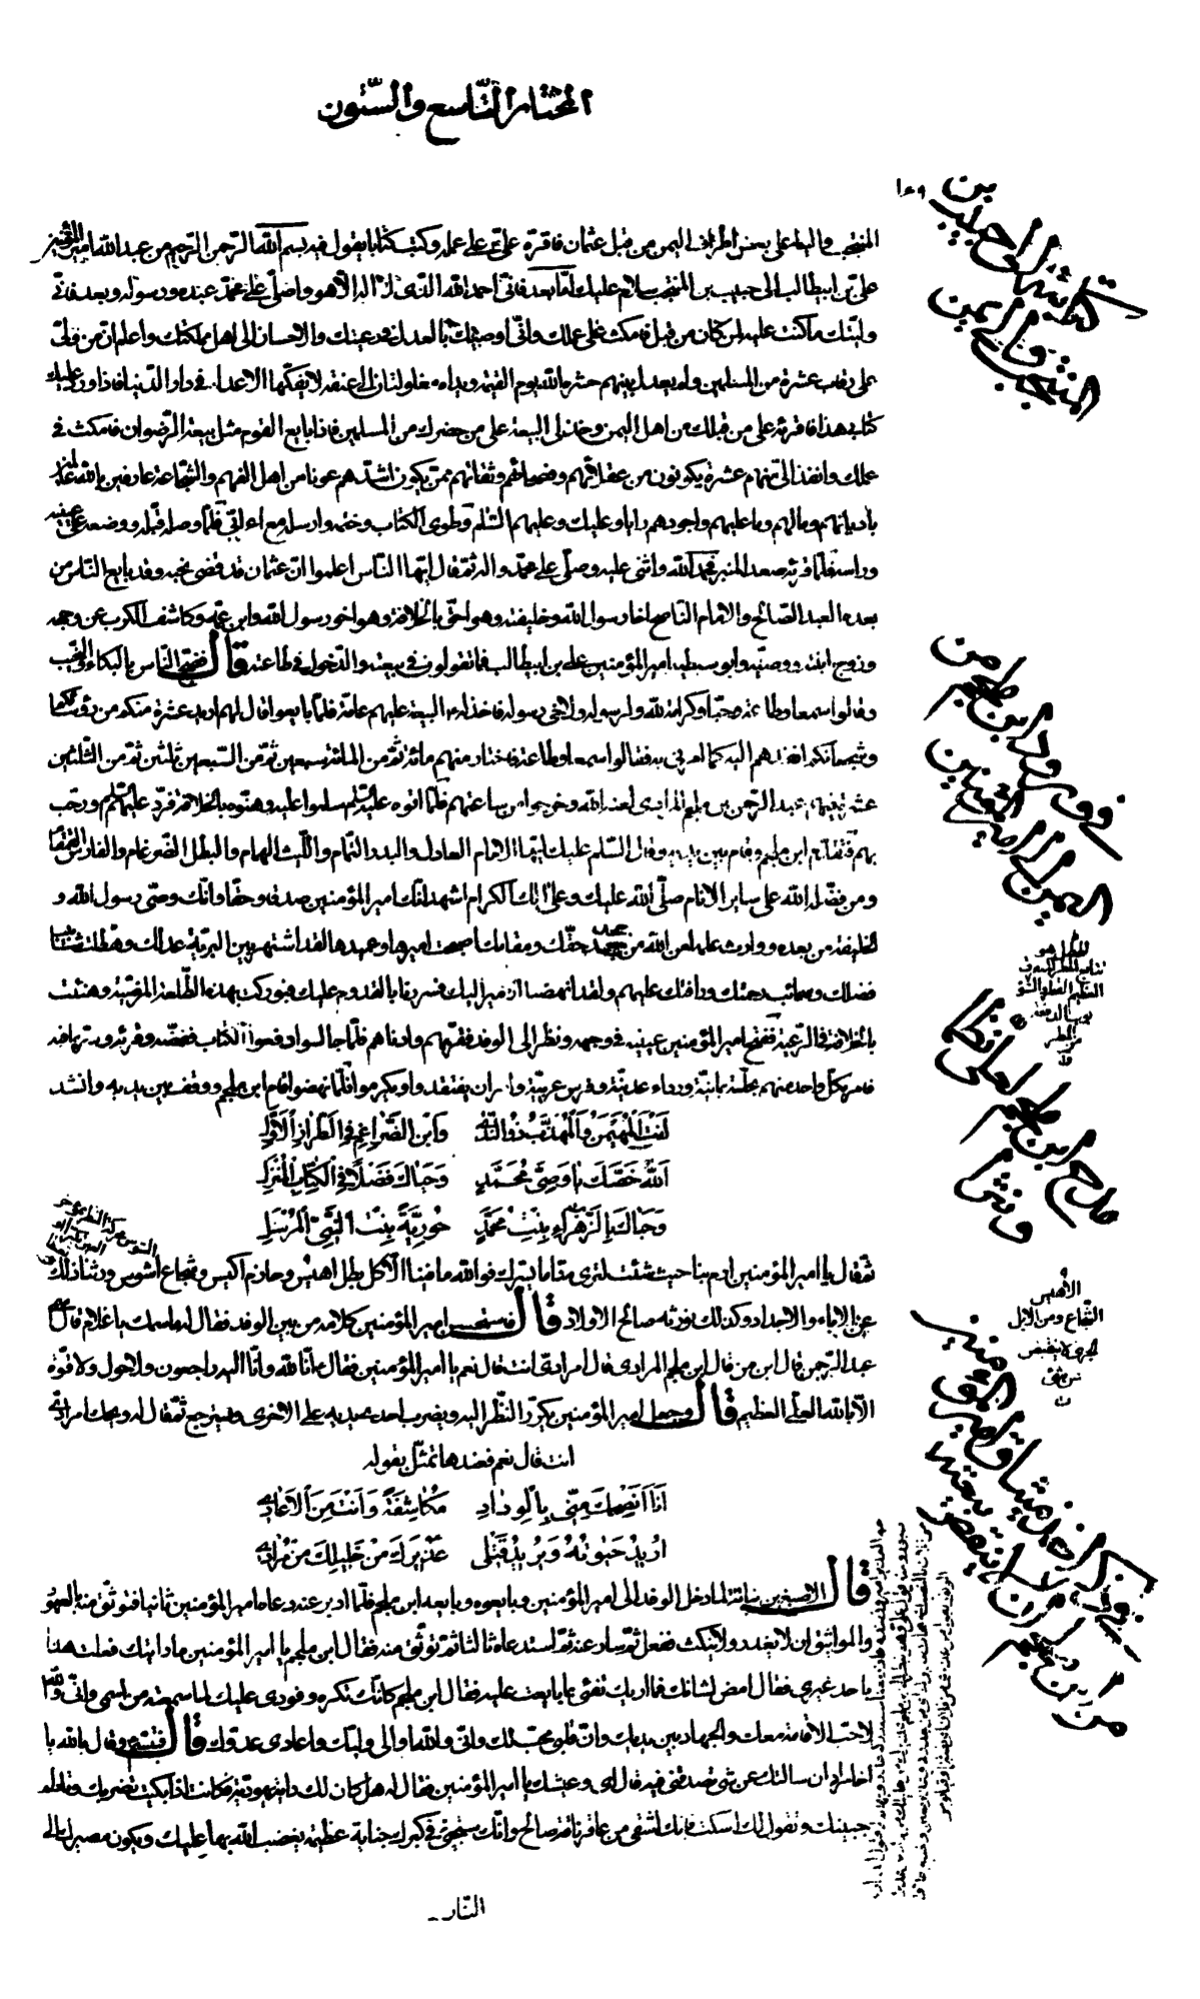 المختار التاسع والستون
١٤٩
كتابه الى حبيب بن المنتجب والى يمن
المنتجب واليا على بعض اطراف اليمن من قبل عثمان فاقره على ع على عمله وكتب كتابا يقول فيه بسم الله الرحمن الرحيم من عبد الله امير المؤمنين
على بن ابيطالب الى حبيب بن المنتجب سلام عليك اما بعد فانى احمد الله الذى لا اله الا هو واصلى على محمد عبده ورسوله وبعد فانى
وليتك ما كنت عليه لمن كان من قبل فامكث على عملك وانى اوصيك بالعدل فى رعيتك والاحسان الى اهل مملكتك واعلم ان من ولى
على رقاب عشرة من المسلمين ولم يعدل بينهم حشره الله يوم القيمة ويداه مغلولتان الى عنقه لا يفكها الا عدله فى دار الدنيا فاذا ورد عليك
كتابى هذا فاقرئه على من قبلك من اهل اليمن وخذ لى البيعة على من حضرك من المسلمين فاذا بايع القوم مثل بيعة الرضوان فامكث فى
عملك وانفذ الى منهم عشرة يكونون من عقلائهم وفصحائهم وثقاتهم ممن يكون اشدهم عونا من اهل الفهم والشجاعة عارفين بالله عالمين
باديانهم ومالهم وما عليهم واجودهم رايا وعليك وعليهم السلم وطوى الكتاب وختمه وارسله مع اعرابى فلما وصله قبله ووضعه على عينيه
وراسه فلما قرئه صعد المنبر فحمد الله واثنى عليه وصلى على محمد واله ثم قال ايها الناس اعلموا ان عثمان قد قضى نحبه وقد بايع الناس من
بعده العبد الصالح والامام الناصح اخا رسول الله وخليفته وهو احق بالخلافة وهو اخو رسول الله وابن عمه وكاشف الكرب عن وجهه
وزوج ابنته ووصيه وابو سبطيه امير المؤمنين على بن ابيطالب فما تقولون فى بيعته والدخول فى طاعته قال فضج الناس بالبكاء والنحيب
وقالوا سمعا وطاعة وحبا وكرامة لله ولرسوله ولاخى رسوله فاخذ له البيعة عليهم عامة فلما بايعوا قال لهم اريد عشرة منكم من رؤسائكم
وشجعانكم انفذهم اليه كما امرنى به فقالوا سمعا وطاعة فاختار منهم مائة ثم من المائة سبعين ثم من السبعين ثلثين ثم من الثلثين
عشرة فيهم عبد الرحمن بن ملجم المرادى لعنه الله وخرجوا من ساعتهم فلما اتوه عليه السلم سلموا عليه وهنوه بالخلافة فرد عليهم السلم ورحب
بهم فتقدم ابن ملجم وقام بين يديه وقال السلم عليك ايها الامام العادل والبدر التمام والليث الهمام والبطل الضرغام والفارس القمقام
ومن فضله الله على ساير الانام صلى الله عليك وعلى الك الكرام اشهد انك امير المؤمنين صدقا وحقا وانك وصى رسول الله و
الخليفة من بعده ووارث علمه لعن الله من جحد حقك ومقامك اصبحت اميرها وعميدها لقد اشتهر بين البرية عدلك وهطلت شآبيب
فضلك وسحائب رحمتك ورافتك عليهم ولقد انهضنا الامير اليك فسررنا بالقدوم عليك فبوركت بهذه الطلعة المرضية وهنئت
بالخلافة فى الرعية ففتح امير المؤمنين عينيه فى وجهه ونظر الى الوفد فقربهم وادناهم فلما جلسوا دفعوا اليه الكتاب ففضه وقرئه وسر بما فيه
فامر لكل واحد منهم بحلة يمانية ورداء عدنية وفرس عربية وامر ان يفتقدوا ويكرموا فلما نهضوا قام ابن ملجم ووقف بين يديه وانشد
انت المهيمن والمهذب ذو الندى وابن الضراغم فى الطراز الاول
الله خصك يا وصى محمد وحباك فضلا فى الكتاب المنزل
وحباك بالزهراء بنت محمد حورية بنت النبى المرسل
ثم قال يا امير المؤمنين ارم بنا حيث شئت لترى منا ما يسرك فوالله ما فينا الا كل بطل اهيس وحازم اكيس وشجاع اشوس ورثنا ذلك
عن الاباء والاجداد وكذلك نورثه صالح الاولاد قال فاستحسن امير المؤمنين كلامه من بين الوفد فقال له ما اسمك يا غلام قال اسمى
عبد الرحمن قال ابن من قال ابن ملجم المرادى قال امرادى انت قال نعم يا امير المؤمنين فقال ع انا لله وانا اليه راجعون ولا حول ولا قوة
الا بالله العلى العظيم قال وجعل امير المؤمنين يكرر النظر اليه ويضرب احدى يديه على الاخرى ويسترجع ثم قال له ويحك امرادى
انت قال نعم فعندها تمثل بقوله
انا انصحك منى بالوداد مكاشفة وانت من الاعادى
اريد حيوته ويريد قتلى عذيرك من خليلك من مراد
قال الاصبغ بن نباتة لما دخل الوفد الى امير المؤمنين وبايعوه وبايعه ابن ملجم فلما ادبر عنه دعاه امير المؤمنين ثانيا فتوثق منه بالعهود
والمواثيق ان لا يغدر ولا ينكث ففعل ثم سار عنه ثم استدعاه ثالثا ثم توثق منه فقال ابن ملجم يا امير المؤمنين ما رايتك فعلت هذا
باحد غيرى فقال امض لشانك فما اريك تفى بما بايعت عليه فقال ابن ملجم كانك تكره وفودى عليك لما سمعته من اسمى وانى والله
لاحب الاقامة معك والجهاد بين يديك وان قلبى محب لك وانى والله اوالى وليك واعادى عدوك قال فتبسم ع وقال بالله يا
اخا مراد ان سالتك عن شئ تصدقنى فيه قال اى وعيشك يا امير المؤمنين فقال له هل كان لك داية يهودية فكانت اذا بكيت تضربك وتلطم
جبينك وتقول لك اسكت فانك اشقى من عاقر ناقة صالح وانك ستجنى فى كبرك جناية عظيمة يغضب الله بها عليك ويكون مصيرك الى
النار
فى ورود ابن ملجم من اليمن الى امير المؤمنين
مدح ابن ملجم لعلى ع نظما ونثرا
الاهيس
الشجاع ومن الابل
الجرى لا ينقبض
عن شئ
ق
فى ذكر اخذ ميثاق امير المؤمنين من ابن ملجم